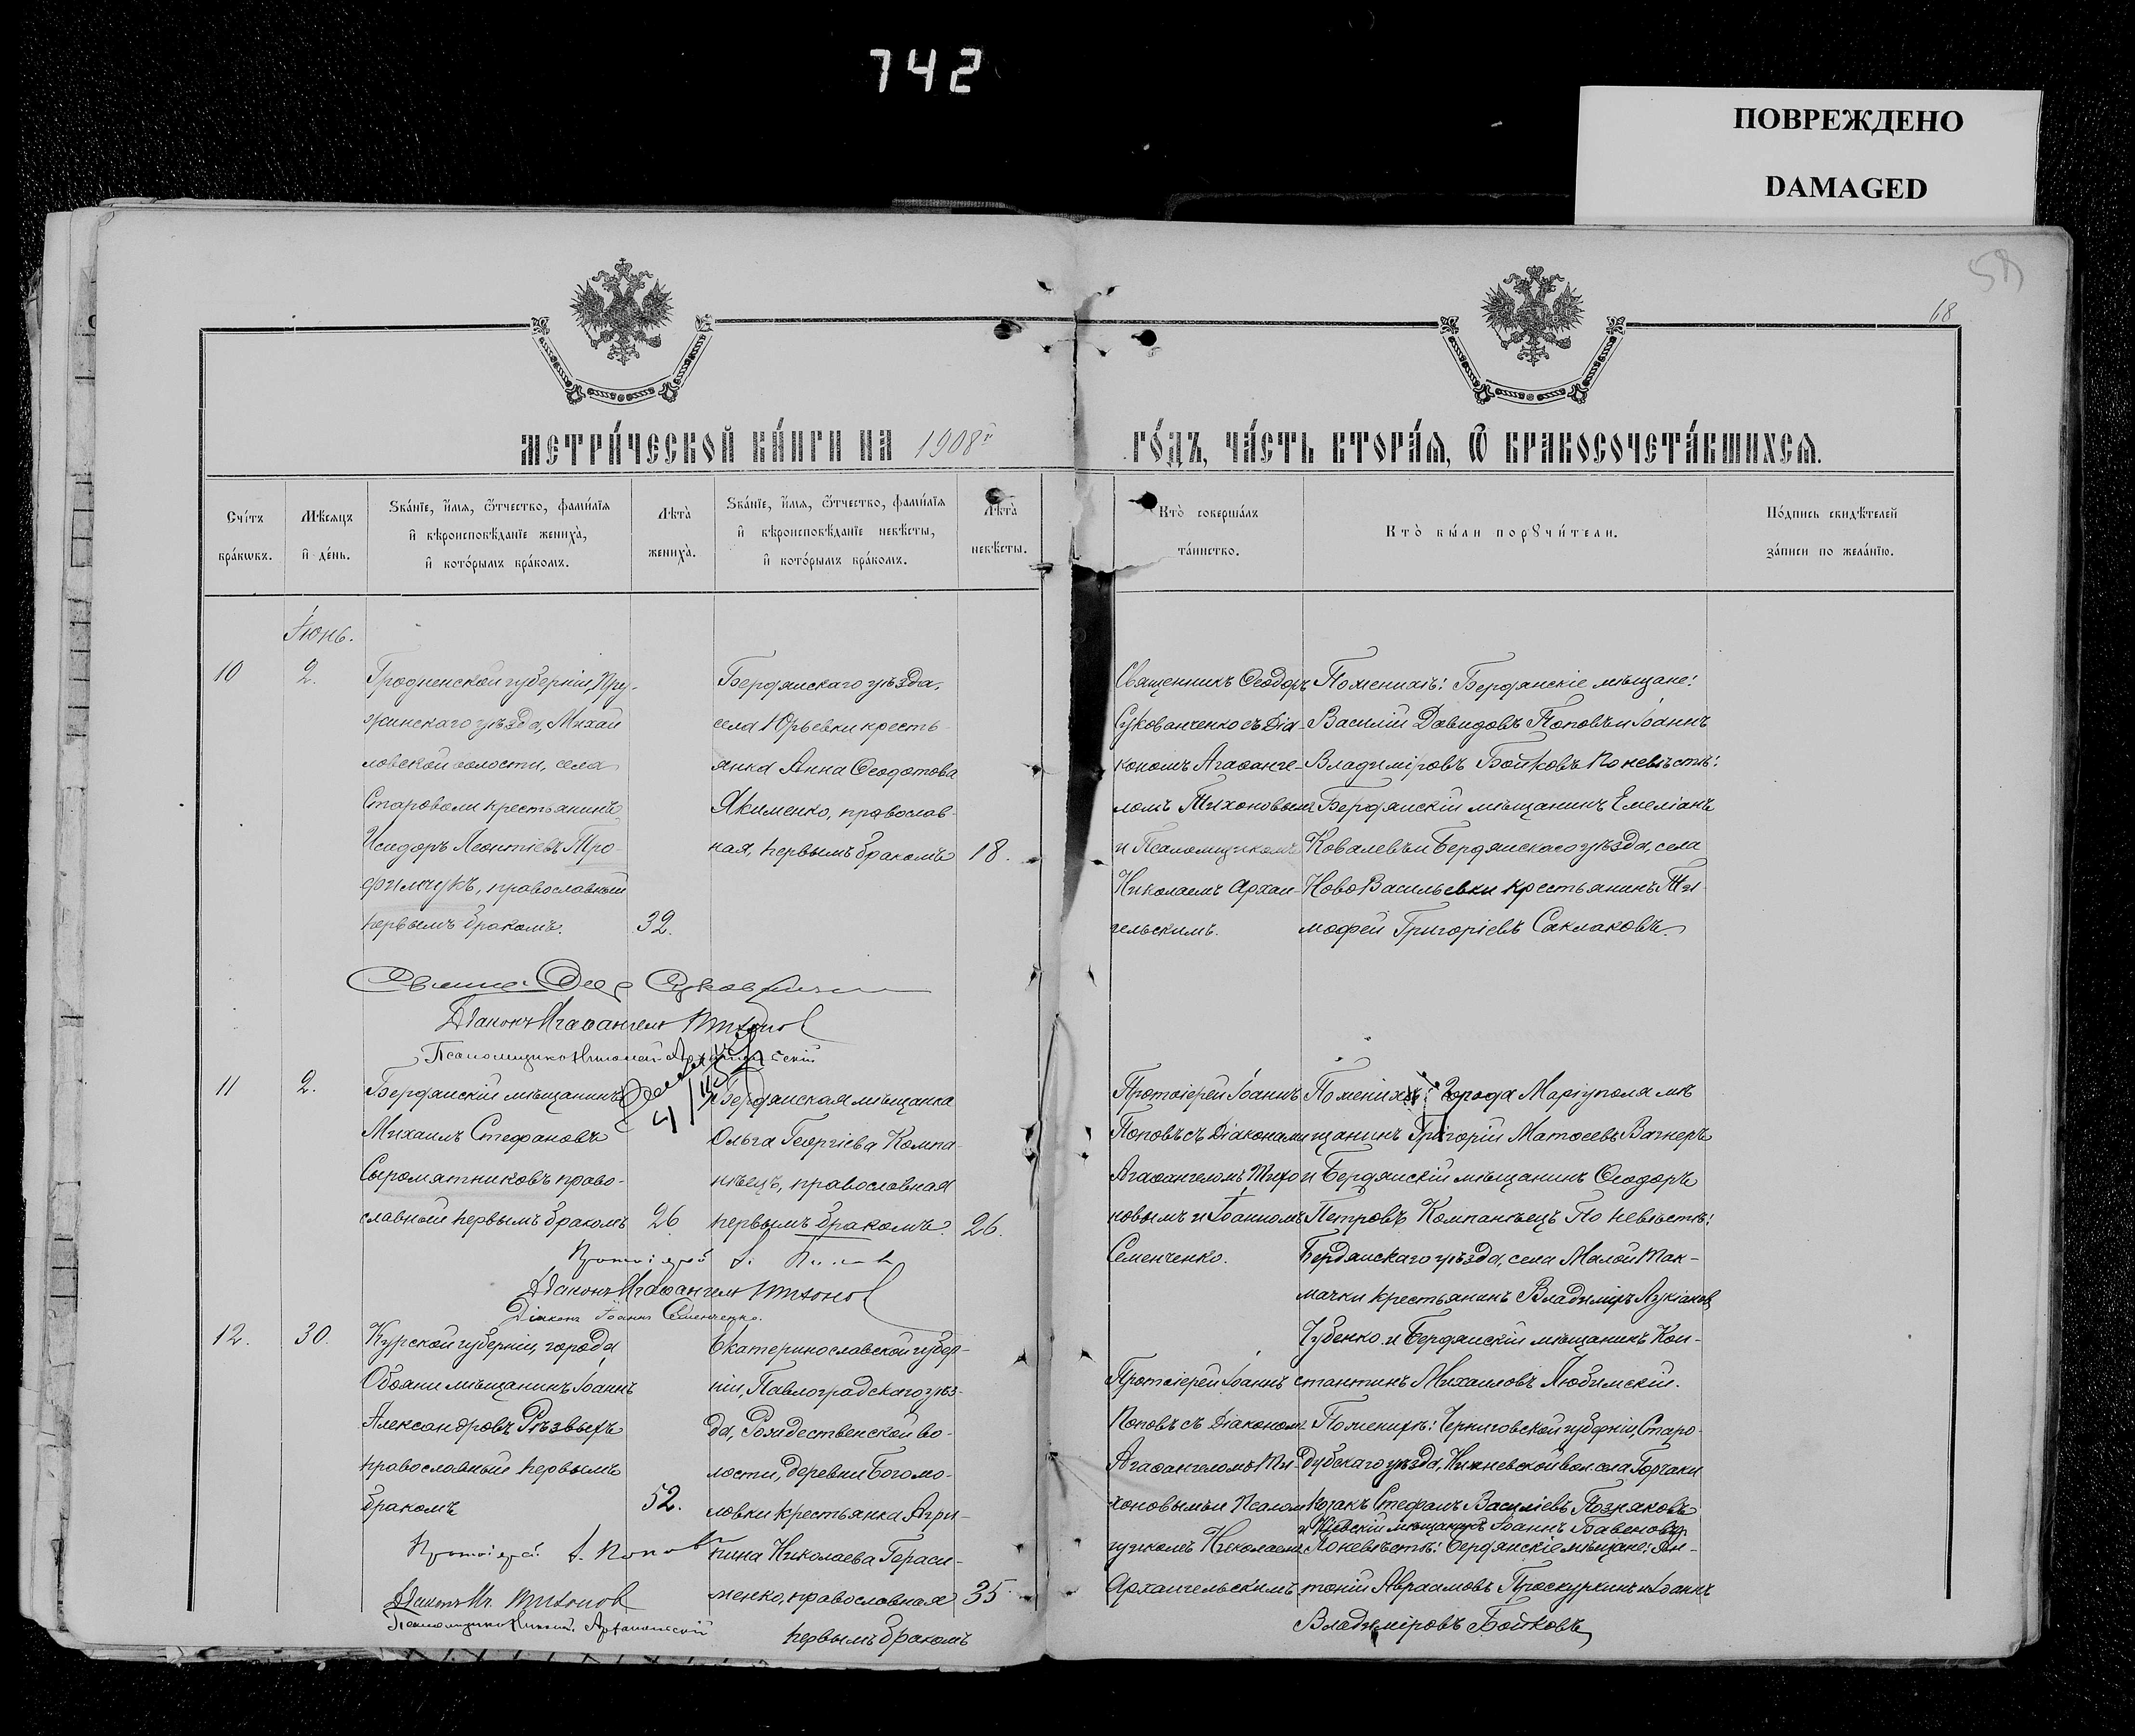 742
ПОВРЕЖДЕНО
DAMAGED
58
68
МЕТРИ́ЧЕСКОЙ КНИ́ГИ НА 1908й
ГО́ДЪ, ЧА́СТЬ ВТОРА́Я, Ѿ БРАКОСОЧЕТА́ВШИХСЯ.
Сче́тъ
бра́ковъ.
Мѣ́сяцъ
и҆ де́нь.
Зва́нїе, и҆́мя, ѻ҆́тчество, фами́лїя
и҆ вѣроисповѣ́данїе жениха̀,
и҆ кото́рымъ бра́комъ.
Лѣта̀
жениха̀.
Зва́нїе, и҆́мя, ѻ҆́тчество, фами́лїя
и҆ вѣроисповѣ́данїе невѣ́сты,
и҆ кото́рымъ бра́комъ.
Лѣта̀
невѣ́сты.
Кто̀ соверша́лъ
та́инство.
Кто̀ бы́ли порꙋчи́тели.
По́дпись свидѣ́телей
за́писи по жела́нїю.
Іюнь.
10
2.
Гродненской губерніи, Пру-
жинскаго уѣзда, Михай
ловской волости, села
Староволи крестьянинъ
Исидоръ Леонтіевъ Тро-
фимчукъ, православный
первымъ бракомъ.
32.
Бердянскаго уѣзда,
села Юрьевки кресть-
янка Анна Ѳеодотова
Якименко, православ-
ная, первымъ бракомъ
18.
Священникъ Ѳеодоръ
Сукованченко съ Діа-
кономъ Агаѳанге-
ломъ Тихоновымъ
и Псаломщикомъ
Николаемъ Архан-
гельскимъ.
По женихѣ: Бердянскіе мѣщане:
Василій Давидовъ Поповъ и Іоаннъ
Владиміровъ Бойковъ По невѣстѣ:
Бердянскій мѣщанинъ Емеліанъ
Ковалевъ и Бердянскаго уѣзда, села
НовоВасильевки крестьянинъ Ти-
мофей Григоріевъ Саклаковъ.
Діаконъ Агаѳангелъ Тихонов
Псаломщикъ Николай
11
2.
Бердянскій мѣщанинъ
Михаилъ Стефановъ
Сыромятниковъ право-
славный первымъ бракомъ
26
Бердянская мѣщанка
Ольга Георгіева Компа-
нѣецъ, православная
первымъ бракомъ.
26.
Протоіерей Іоаннъ
Поповъ съ Діаконами
Агаѳангеломъ Тихо
новымъ и Іоанномъ
Семенченко.
По женихѣ: города Маріуполя мѣ
щанинъ Григорій Матѳеевъ Вагнеръ
и Бердянскій мѣщанинъ Ѳеодоръ
Петровъ Компанѣецъ По невѣстѣ:
Бердянскаго уѣзда, села Малой Так-
мачки крестьянинъ Владиміръ Лукіановъ
Губенко и Бердянскій мѣщанинъ Кон-
стантинъ Михаиловъ Любимскій.
Протоіерей І.
Діаконъ Агаѳангелъ Тихонов
Діаконъ Іоаннъ Семенченко.
12.
30.
Курской губерніи, города
Обояни мѣщанинъ Іоаннъ
Александровъ Рѣзвыхъ
православный первымъ
бракомъ
52.
Екатеринославской губер-
ніи, Павлоградскаго уѣз-
да, Рождественской во-
лости, деревни Богомо-
ловки крестьянка Агри-
пина Николаева Гераси-
менко, православная
первымъ бракомъ
35.
Протоіерей Іоаннъ
Поповъ съ Діакономъ
Агаѳангеломъ Ти-
хоновымъ и Псалом
щикомъ Николаемъ
Архангельскимъ
По женихѣ: Черниговской губерніи, Старо-
дубскаго уѣзда, вол. села Горчаки
козакъ Стефанъ Василіевъ Позняковъ
и Кіевскій мѣщанинъ Іоаннъ
По невѣстѣ: Бердянскіе мѣщане: Ан-
тоній Авраамовъ Проскурнинъ и Іоаннъ
Владиміровъ Бойковъ
Протоіерей І. Попов
Діаконъ Аг. Тихонов
Псаломщикъ Никол. Архангельскій